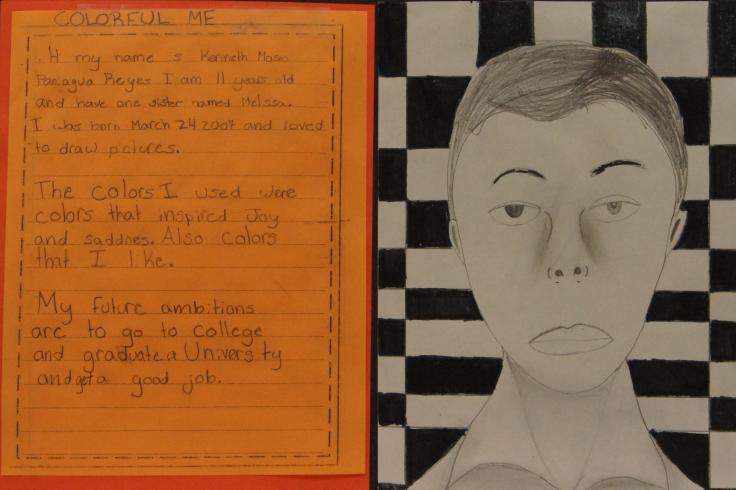 COLORFUL ME
Hi my name is Kenneth Maso
Paniagua Reyes I am 11 years old
and have one sister named Melissa.
I was born March 24 2007 and loved
to draw pictures.
The colors I used were
colors that inspired Joy
and saddnes. Also colors
that I like.
My future ambitions
are to go to College
and graduate a University
and get a good job.